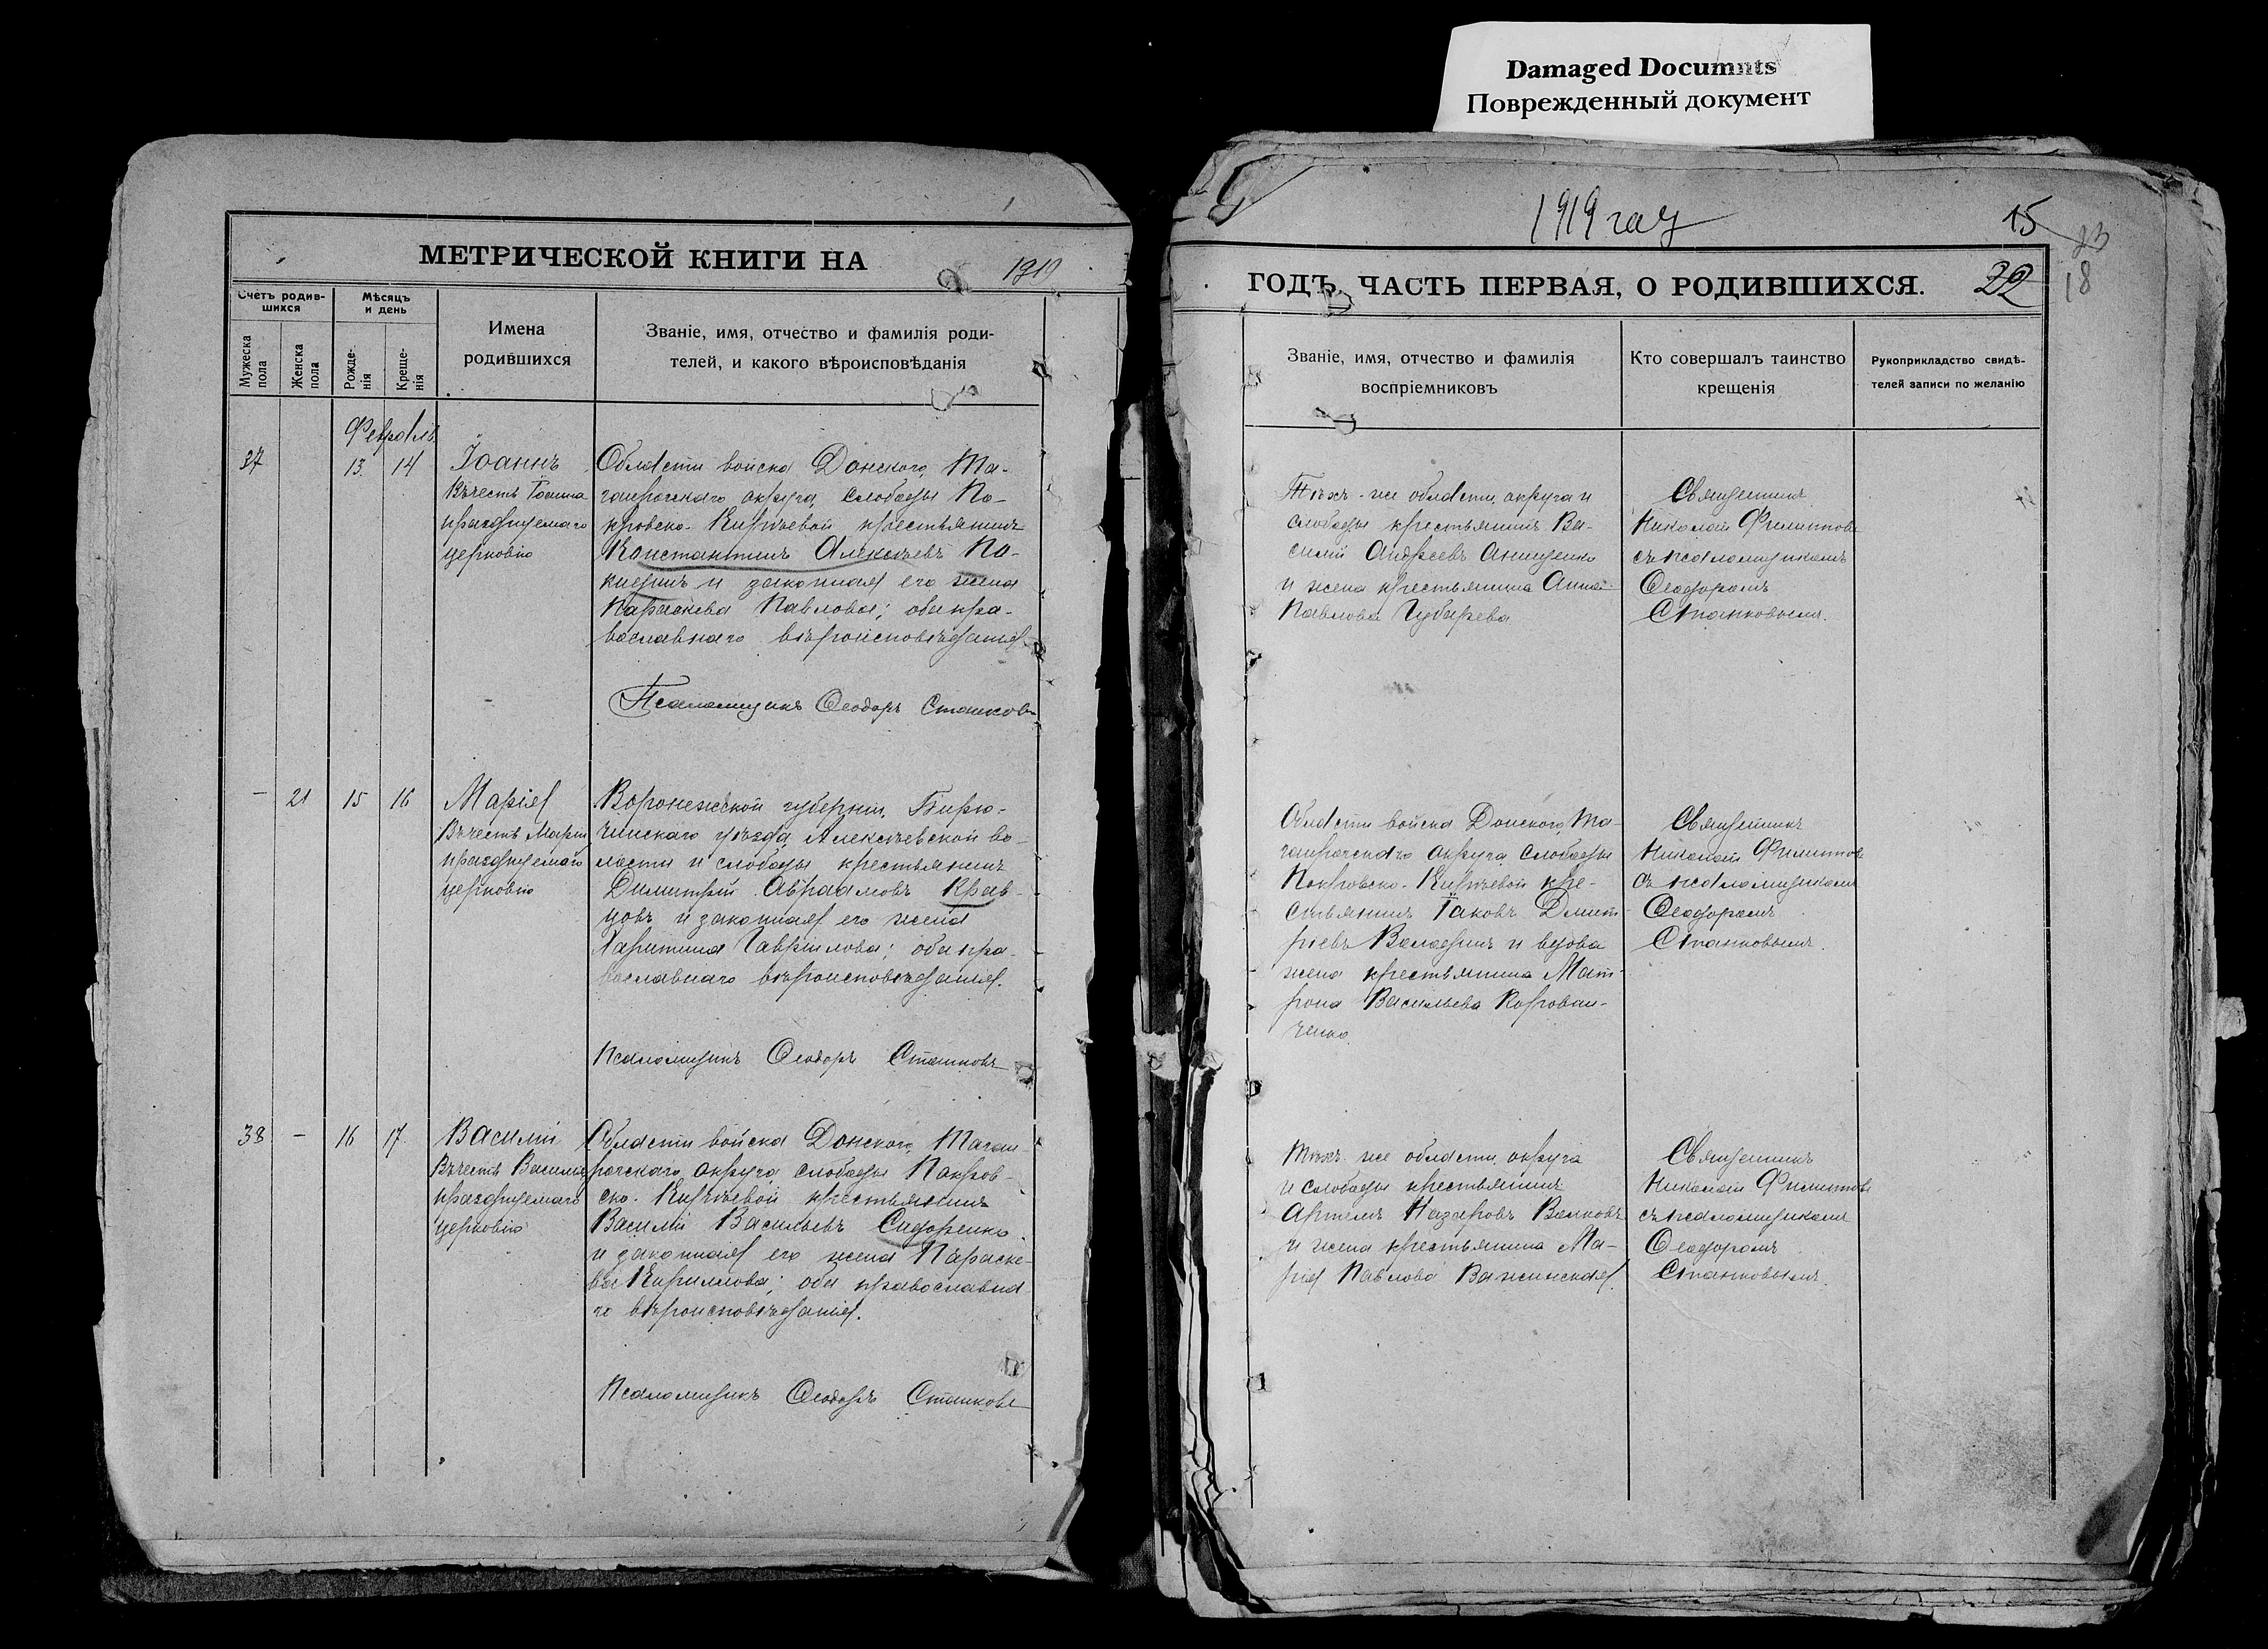 Damaged Documnts
Поврежденный документ
МЕТРИЧЕСКОЙ КНИГИ НА 1919
Счетъ родив-
шихся
Мѣсяцъ
и день
Мужеска
пола
Женска
пола
Рожде-
нія
Креще-
нія
Имена
родившихся
Званіе, имя, отчество и фамилія роди-
телей, и какого вѣроисповѣданія
Февраль
37
13
14
Іоаннъ
Въ честь Іоанна
празднуемаго
церковію
Области войска Донского, Та-
ганрогскаго округа, слободы По-
кровско-Кирѣевой крестьянинъ
Константинъ Алексѣевъ По-
и законная его жена
Параскева Павлова; оба пра-
вославнаго вѣроисповѣданія.
Псаломщикъ Ѳеодоръ Станковъ
—
21
15
16
Марія
Въ честь Маріи
празднуемаго
церковію
Воронежской губерніи, Бирю-
чинскаго уѣзда, Алексѣевской во-
лости и слободы крестьянинъ
Димитрій Авраамовъ Крав-
цовъ и законная его жена
Харитина Гавріилова; оба пра-
вославнаго вѣроисповѣданія.
Псаломщикъ Ѳеодоръ Станковъ
38
—
16
17
Василій
Въ честь Василія
празднуемаго
церковію
Области войска Донского, Таган-
рогскаго округа, слободы Покров-
ско-Кирѣевой крестьянинъ
Василій Васильевъ Сидоренко
и законная его жена Параске-
ва Кириллова; оба православна
го вѣроисповѣданія.
Псаломщикъ Ѳеодоръ Станковъ
1919 год
15
23
18
ГОДЪ, ЧАСТЬ ПЕРВАЯ, О РОДИВШИХСЯ.
22
Званіе, имя, отчество и фамилія
воспріемниковъ
Кто совершалъ таинство
крещенія
Рукоприкладство свидѣ-
телей записи по желанію
Тѣхъ-же области, округа и
слободы крестьянинъ Ва-
силій Андреевъ Анищенко
и жена крестьянина Анна
Павлова Губарева
Священникъ
Николай Филиппов
съ псаломщикомъ
Ѳеодоромъ
Станковымъ.
Области войска Донского, Та-
ганрогскаго округа, слободы
Покровско-Кирѣевой кре-
стьянинъ Іаковъ Дмит-
ріевъ и вдова
жена крестьянина Мат-
рона Васильева Корован-
ченко.
Священникъ
Николай Филиппов
съ псаломщикомъ
Ѳеодоромъ
Станковымъ.
Тѣхъ-же области, округа
и слободы крестьянинъ
Артемъ Назаровъ Волковъ
и жена крестьянина Ма-
рія Павлова Важинская.
Священникъ
Николай Филиппов
съ псаломщикомъ
Ѳеодоромъ
Станковымъ.